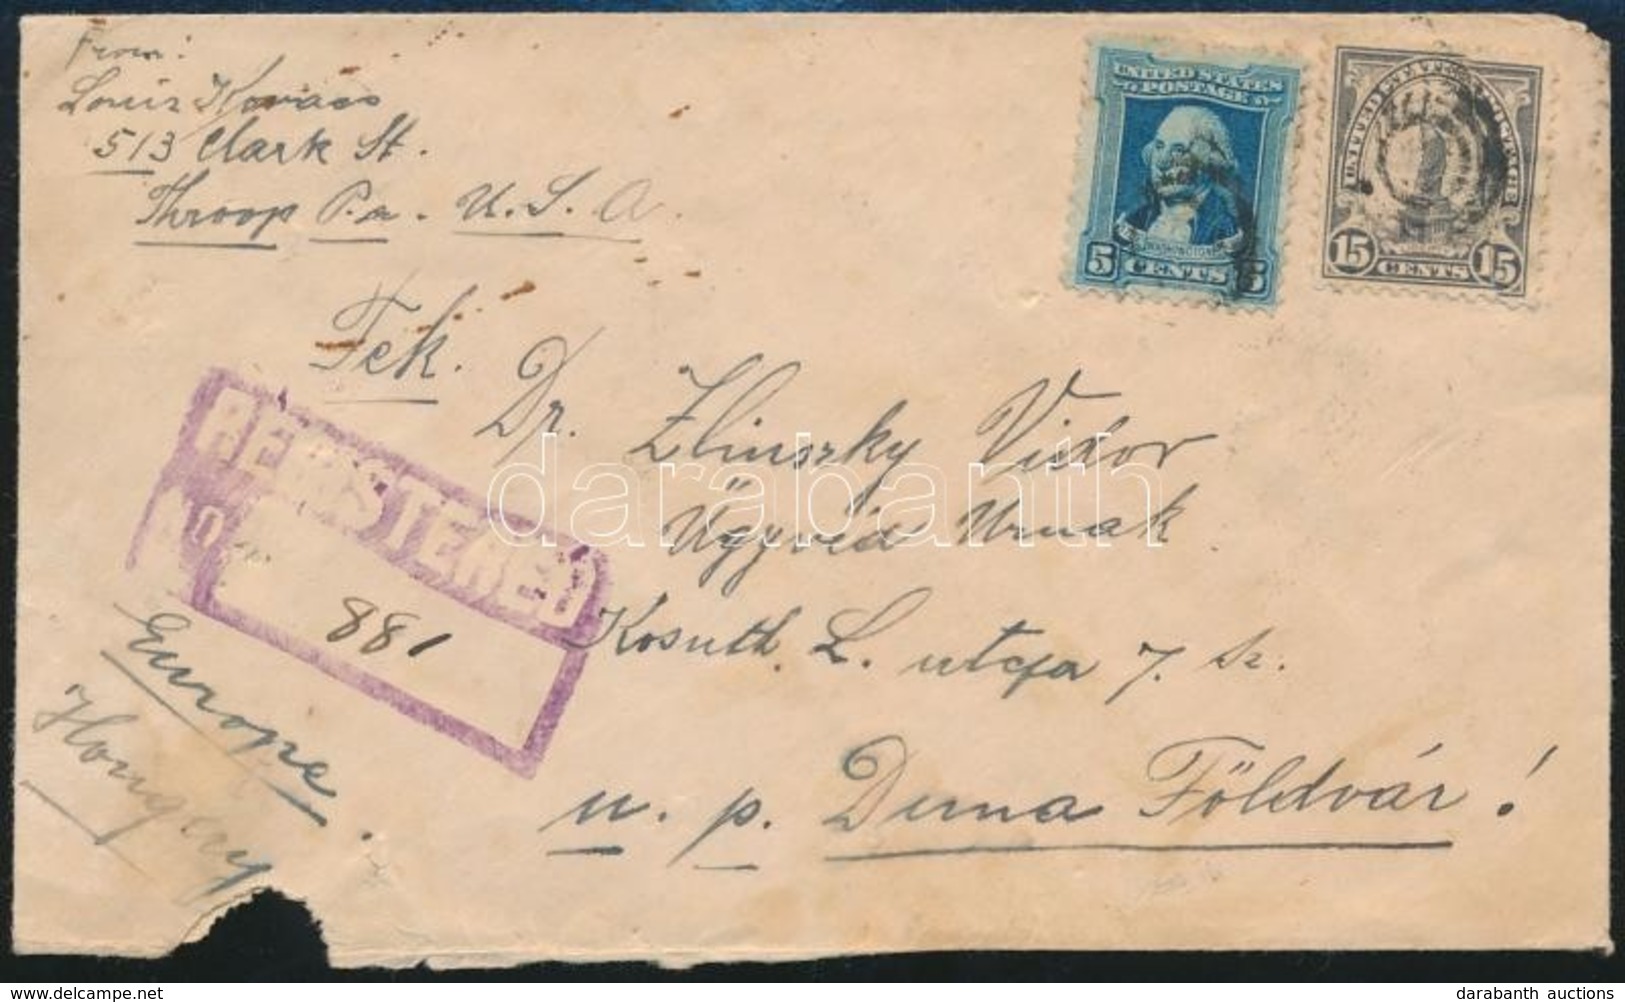 From:
Louis Kovacs
513 Clark St.
Throop Pa. U.S.A.
UNITED STATES
POSTAGE
WASHINGTON
5 CENTS 5
15 CENTS 15
Tek.
Dr. Zlinszky Vidor
Ügyvéd Urnak
Kosuth. L. utcza 7. sz.
u. p. Duna Földvár!
REGISTERED
No.
881
Europe.
Hongery
darabanth
delcampe.net
darabanth auctions